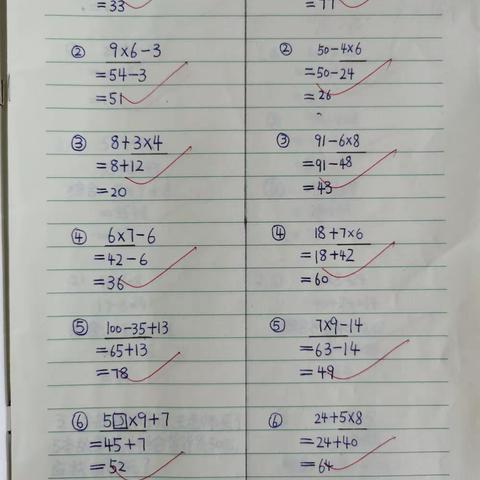 =33
② 9×6-3
=54-3
=51
③ 8+3×4
=8+12
=20
④ 6×7-6
=42-6
=36
⑤ 100-35+13
=65+13
=78
⑥ 5×9+7
=45+7
=52
=77
② 50-4×6
=50-24
=26
③ 91-6×8
=91-48
=43
④ 18+7×6
=18+42
=60
⑤ 7×9-14
=63-14
=49
⑥ 24+5×8
=24+40
=64